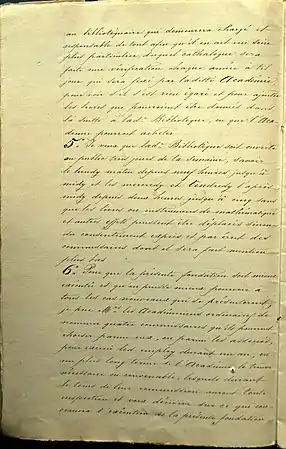 au bibliotequaire qui demeurera chargé et
responsable de tout afin qu'il en ait un soin
plus particulier, duquel cathalogue sera
faite une vérification chaque année à tel
jour que sera fixé par ladite Académie
pour voir s'il s'est rien égaré et pour ajouter
les livres qui pourroient être donnés dans
la suite à lad.e Bibliotèque, ou que l'Aca-
démie pourroit acheter.
5.o Je veux que lad.e Bibliotèque soit ouverte
au public trois jours de la semaine, savoir
le lundy matin depuis neuf heures jusqu'à
midy et les mercredy et vendredy l'après
midy depuis deux heures jusqu'à cinq sans
que les livres ou instrumens de mathématique
et autres effets puissent être déplacés sinon
du consentement exprès et par écrit des
commissaires dont il sera fait mention
plus bas
6.o Pour que la présente fondation soit mieux
exécutée et qu'on puisse mieux pourvoir à
tous les cas nouveaux qui se présenteront,
je prie M.rs les Académiciens ordinaires de
nommer quatre commissaires qu'ils pourront
choisir parmi eux, ou parmi les associés,
pour exercer cet employ durant un an, ou
un plus long terme si l'Académie le trouve
nécessaire ou convenable, lesquels durant
le tems de leur commission auront toute
inspection et voix décisive sur ce qui con-
cernera l'exécution de la présente fondation